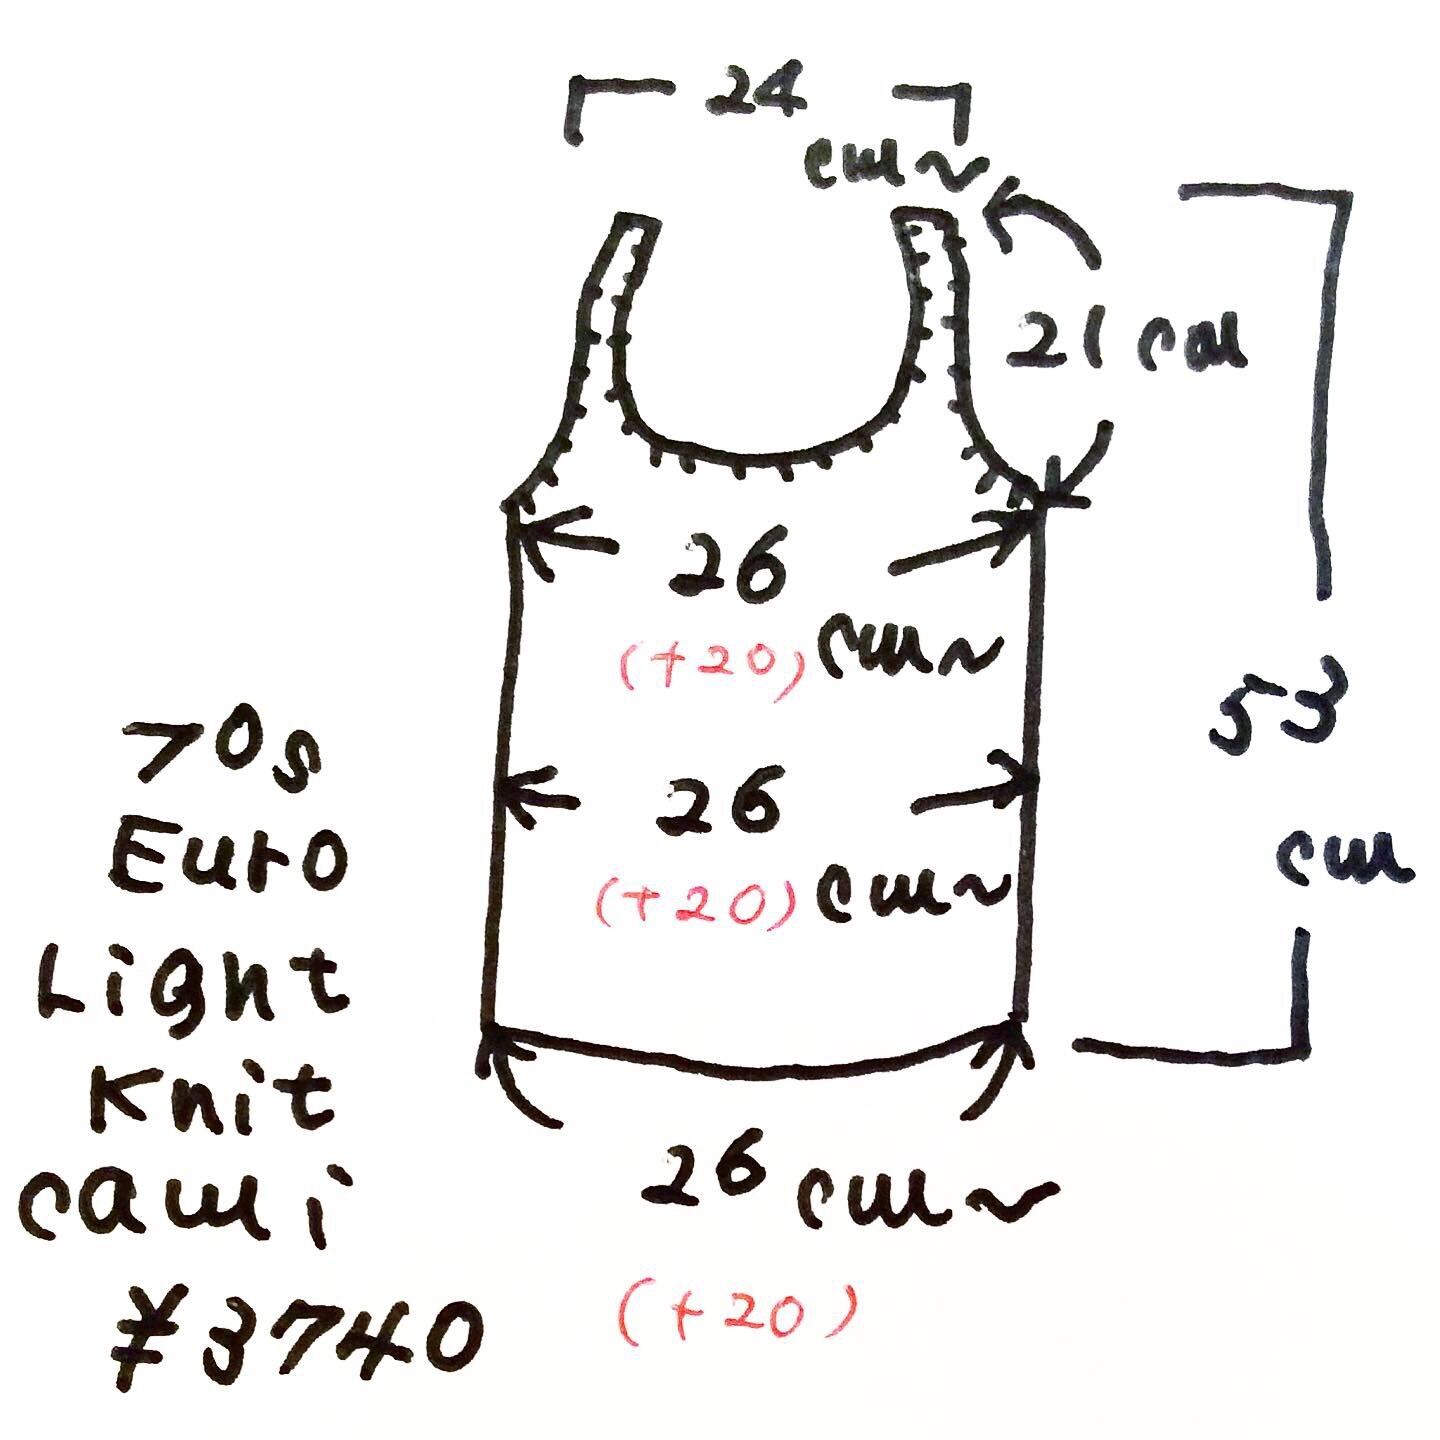 24
cm~
21 cm
26
(+20) cm~
53
cm
26
(+20) cm~
26 cm~
(+20)
70s
Euro
Light
Knit
cami
¥3740